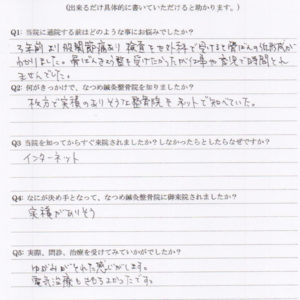 (出来るだけ具体的に書いていただけると助かります。)
Q1: 当院に通院する前はどのような事にお悩みでしたか?
3年前より股関節痛あり 検査を他外科で受けると骨ばんの
わかりました。骨ばんきょう整を受けたかったが仕事や育児で時間とれ
ませんでした。
Q2: 何がきっかけで、なつめ鍼灸整骨院を知りましたか?
枚方で実積のありそうな整骨院を ネットで調べていた。
Q3 当院を知ってからすぐ来院されましたか?しなかったらとしたらなぜですか?
インターネット
Q4: なにが決め手となって、なつめ鍼灸整骨院に御来院されましたか?
実積がありそう
Q5: 実際、問診、治療を受けてみていかがでしたか?
ゆがみがとれた感じがします。
電気治療もきもちよかったです。